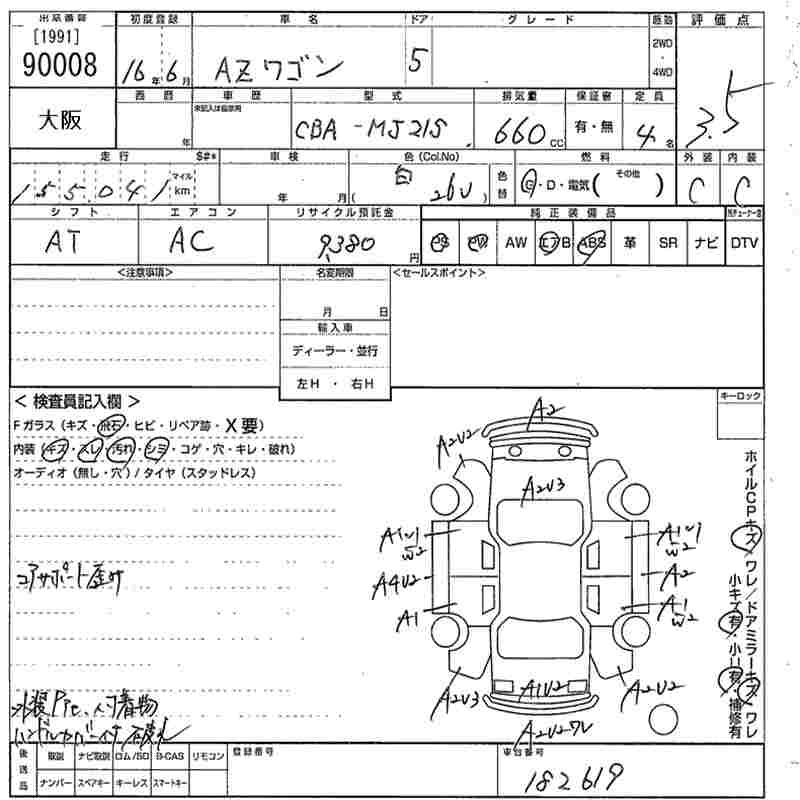 出品番号 初度登録 車名 ドア グレード 駆動 評価点
[1991]
90008 16年 6月 AZワゴン 5 2WD・4WD 3.5
大阪 西暦 年 車歴 未記入は自家用 型式 CBA-MJ21S 排気量 660cc 保証書 有・無 定員 4名
走行 $#* 車検 色(Col,No) 燃料 外装 内装
155,041 マイル km 年 月 白 ( 26U ) 色替 G・D・電気( その他 ) C C
シフト エアコン リサイクル預託金 純正装備品
AT AC 9,380円 PS PW AW エアB ABS 革 SR ナビ DTV
<注意事項> 名変期限 <セールスポイント>
月 日
輸入車
ディーラー・並行
左H ・ 右H
< 検査員記入欄 > キーロック
Fガラス (キズ・飛石・ヒビ・リペア跡・X要)
内装 (キズ・スレ・汚れ・シミ・コゲ・穴・キレ・破れ)
オーディオ (無し・穴) / タイヤ (スタッドレス)
コアサポート歪み
外装
ハンドルカバー
A2
A2U2
A2U3
A1U1
W2
A1U1
W2
A4U2
A2
A1
A1
W2
A2U3
A1U2
A2U2
A2U2ワレ
ホイルCPキズ/ワレ/ドアミラーキズ/ワレ
小キズ有・小U有・補修有
後送品 取説 ナビ取説 ロム/SD B-CAS リモコン 登録番号 車台番号
ナンバー スペアキー キーレス スマートキー 182619